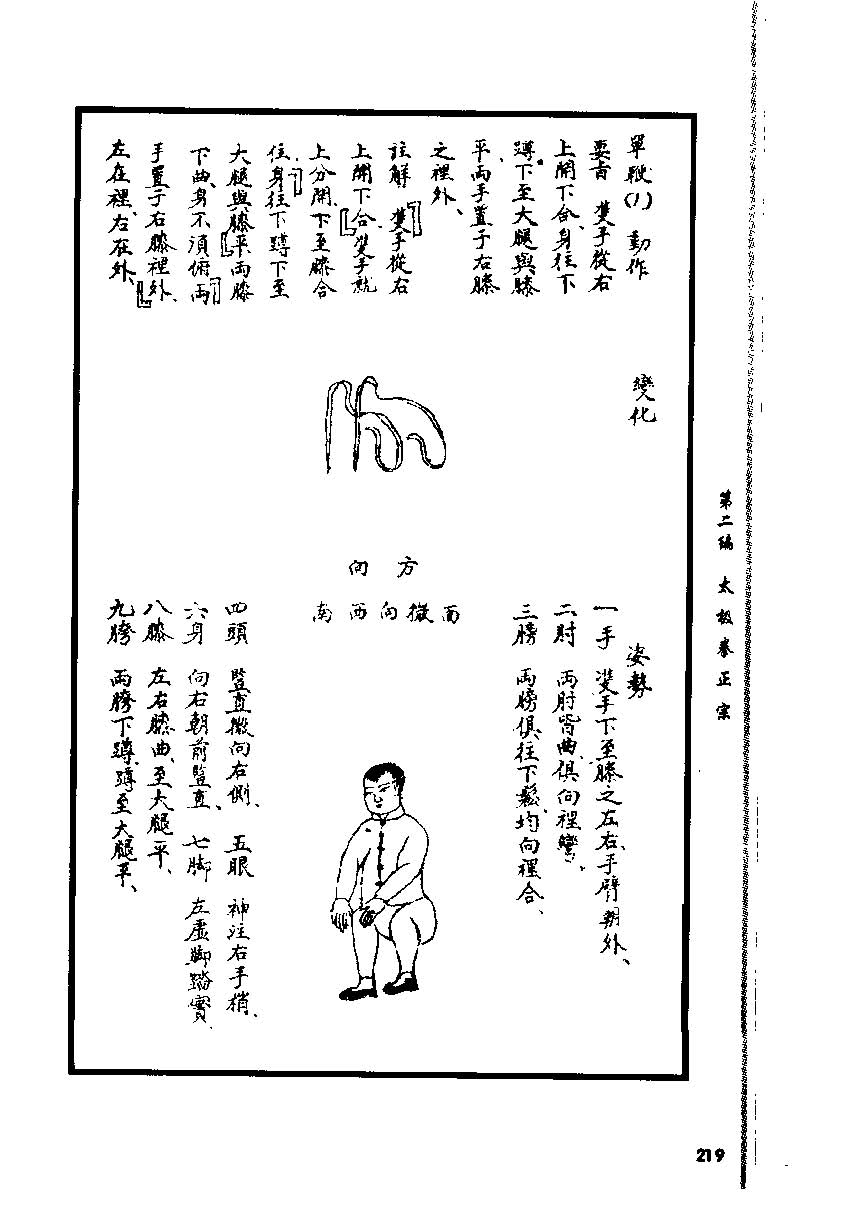 單鞭(1) 動作
要言 雙手從右
上開下合、身往下
蹲、下至大腿與膝
平、兩手置于右膝
之裡外、
註解 「雙手從右
上開下合」雙手就
上分開、下至膝合
住、「身往下蹲下至
大腿與膝平」兩膝
下曲、身不須俯「兩
手置于右膝裡外」、
左在裡、右在外、
變化
方向
面微向西南
姿勢
一手 雙手下至膝之左右、手臂朝外、
二肘 兩肘皆曲、俱向裡彎、
三膀 兩膀俱往下鬆、均向裡合、
四頭 豎直微向右側、 五眼 神注右手梢、
六身 向右朝前豎直、 七脚 左虛脚踏實、
八膝 左右膝曲、至大腿平、
九胯 兩胯下蹲、蹲至大腿平、
第二編 太极拳正宗
219